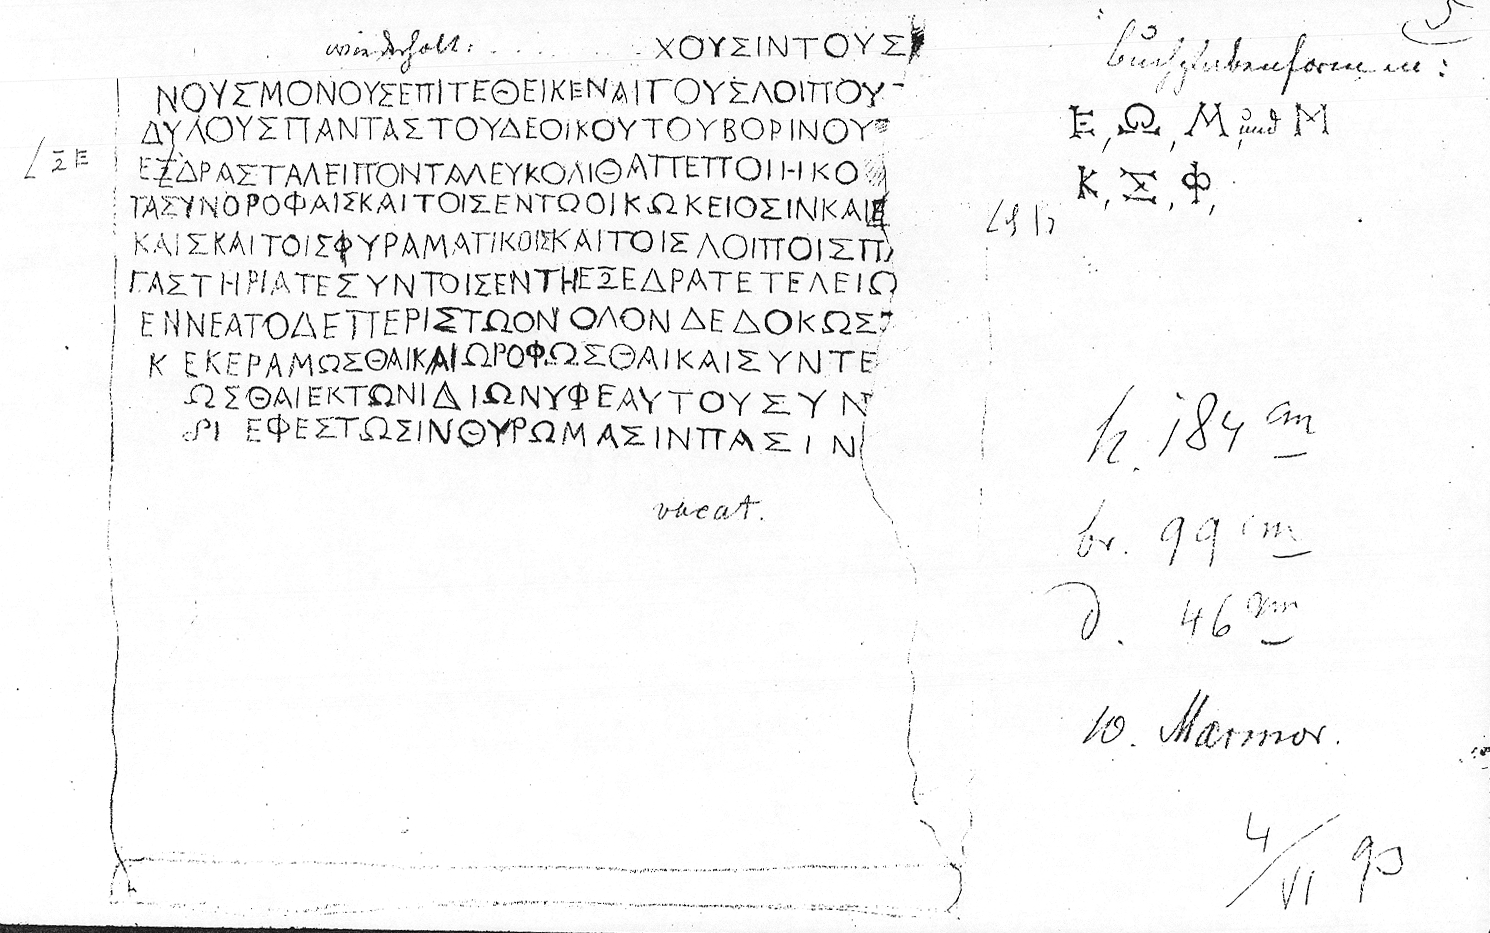 wiederholt: . . . . . . . ΧΟΥΣΙΝΤΟΥΣ
ΝΟΥΣΜΟΝΟΥΣΕΠΙΤΕΘΕΙΚΕΝΑΙΤΟΥΣΛΟΙΠΟΥ
ΔΥΛΟΥΣΠΑΝΤΑΣΤΟΥΔΕΟΙΚΟΥΤΟΥΒΟΡΙΝΟΥ
ΕΞΔΡΑΣΤΑΛΕΙΠΟΝΤΑΛΕΥΚΟΛΙΘΑΠΕΠΟΙΗΚΟ
ΤΑΣΥΝΟΡΟΦΑΙΣΚΑΙΤΟΙΣΕΝΤΩΟΙΚΩΚΕΙΟΣΙΝΚΑΙΕ
ΚΑΙΣΚΑΙΤΟΙΣΦΥΡΑΜΑΤΙΚΟΙΣΚΑΙΤΟΙΣΛΟΙΠΟΙΣΠ
ΓΑΣΤΗΡΙΑΤΕΣΥΝΤΟΙΣΕΝΤΗΕΞΕΔΡΑΤΕΤΕΛΕΙΩ
ΕΝΝΕΑΤΟΔΕΠΕΡΙΣΤΩΟΝΟΛΟΝΔΕΔΟΚΩΣ
Κ ΕΚΕΡΑΜΩΣΘΑΙΚΑΙΩΡΟΦΩΣΘΑΙΚΑΙΣΥΝΤΕ
ΩΣΘΑΙΕΚΤΩΝΙΔΙΩΝΥΦΕΑΥΤΟΥΣΥΝ
ΡΙ ΕΦΕΣΤΩΣΙΝΘΥΡΩΜΑΣΙΝΠΑΣΙΝ
vacat.
ΞΕ
5
Buchstabenformen:
Ε, Ω, Μ und Μ
Κ, Σ, Φ,
h. 184 cm
br. 99 cm
d. 46 cm
w. Marmor.
4/VI 93